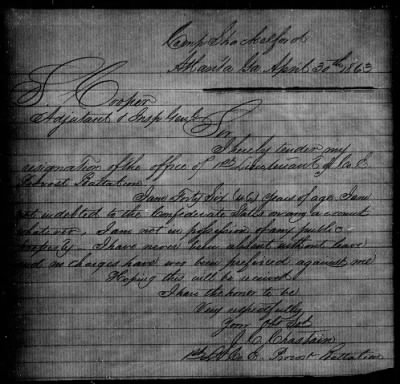 Atlanta Ga April 30th 1863
S. Cooper
Adjutant & Insp Genl
Sir
I hereby tender my
resignation of the office of 1st Lieutenant of Co. E
Provost Battalion
I am Forty Six (46) years of age. I am
not indebted to the Confederate States on any account
whatever, I am not in possession of any public
property. I have never been absent without leave
and no charges have ever been preferred against me
Hoping this will be
I have the honor to be
Very respectfully
Your Obt Svt
J. C. Chastain
1st Lt Co E. Provost Battalion